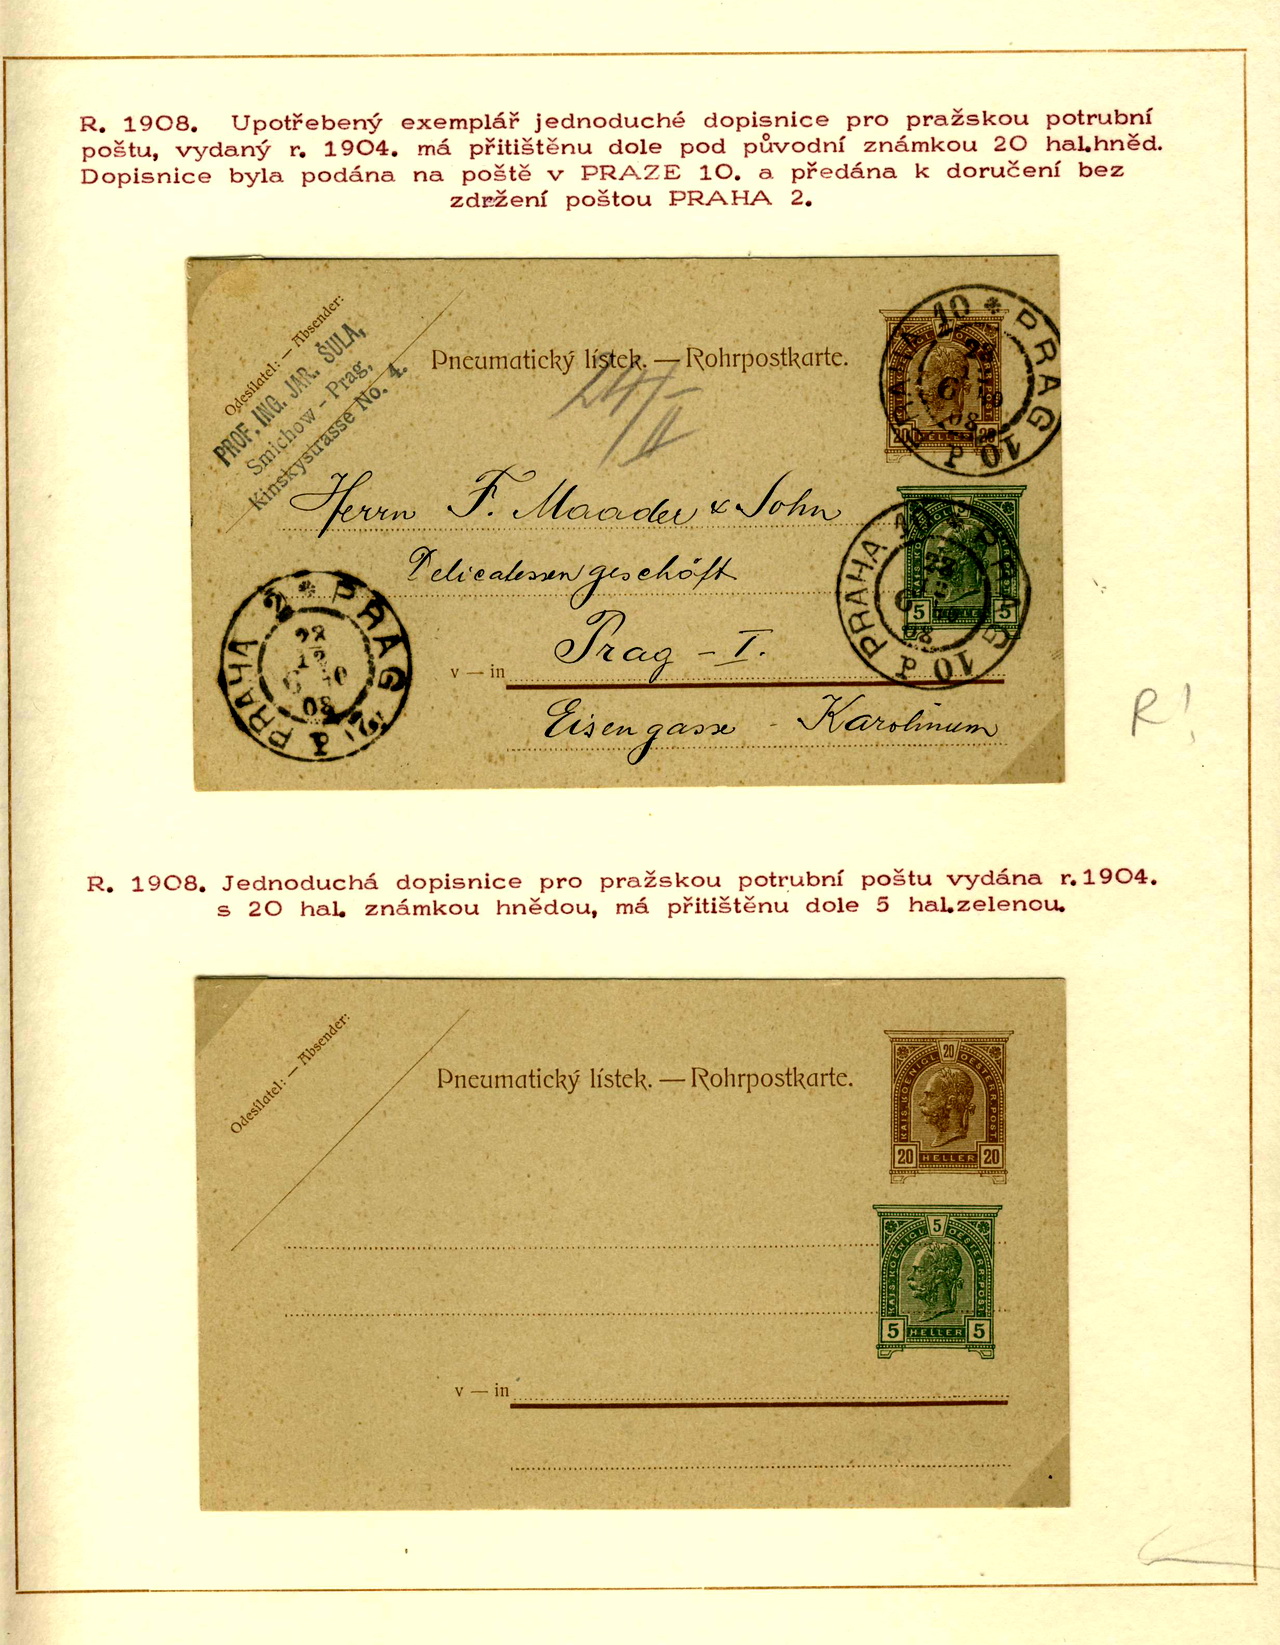 R. 1908. Upotřebený exemplář jednoduché dopisnice pro pražskou potrubní
poštu, vydaný r. 1904. má přitištěnu dole pod původní známkou 20 hal.hněd.
Dopisnice byla podána na poště v PRAZE 10. a předána k doručení bez
zdržení poštou PRAHA 2.
Odesílatel: — Absender:
PROF. ING. JAR. ŠULA,
Smichow - Prag,
Kinskystrasse No. 4.
Pneumatický lístek. — Rohrpostkarte.
PRAHA 10 * PRAG 10 d
08
20 HELLER 20
Herrn F. Maader & Sohn
Delicatessengeschäft
v — in Prag - I.
Eisengasse - Karolinum
PRAHA * PRAG 10 d
5 HELLER 5
PRAHA 2 * PRAG 2 d
08
R!
R. 1908. Jednoduchá dopisnice pro pražskou potrubní poštu vydána r.1904.
s 20 hal. známkou hnědou, má přitištěnu dole 5 hal.zelenou.
Odesílatel: — Absender:
Pneumatický lístek. — Rohrpostkarte.
20
KAIS. KOENIGL. OESTERR. POST.
20 HELLER 20
5
KAIS. KOENIGL. OESTERR. POST.
5 HELLER 5
v — in